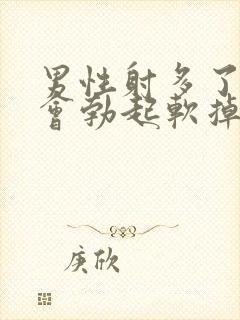 男性射多了
會勃起軟掉
庚欣